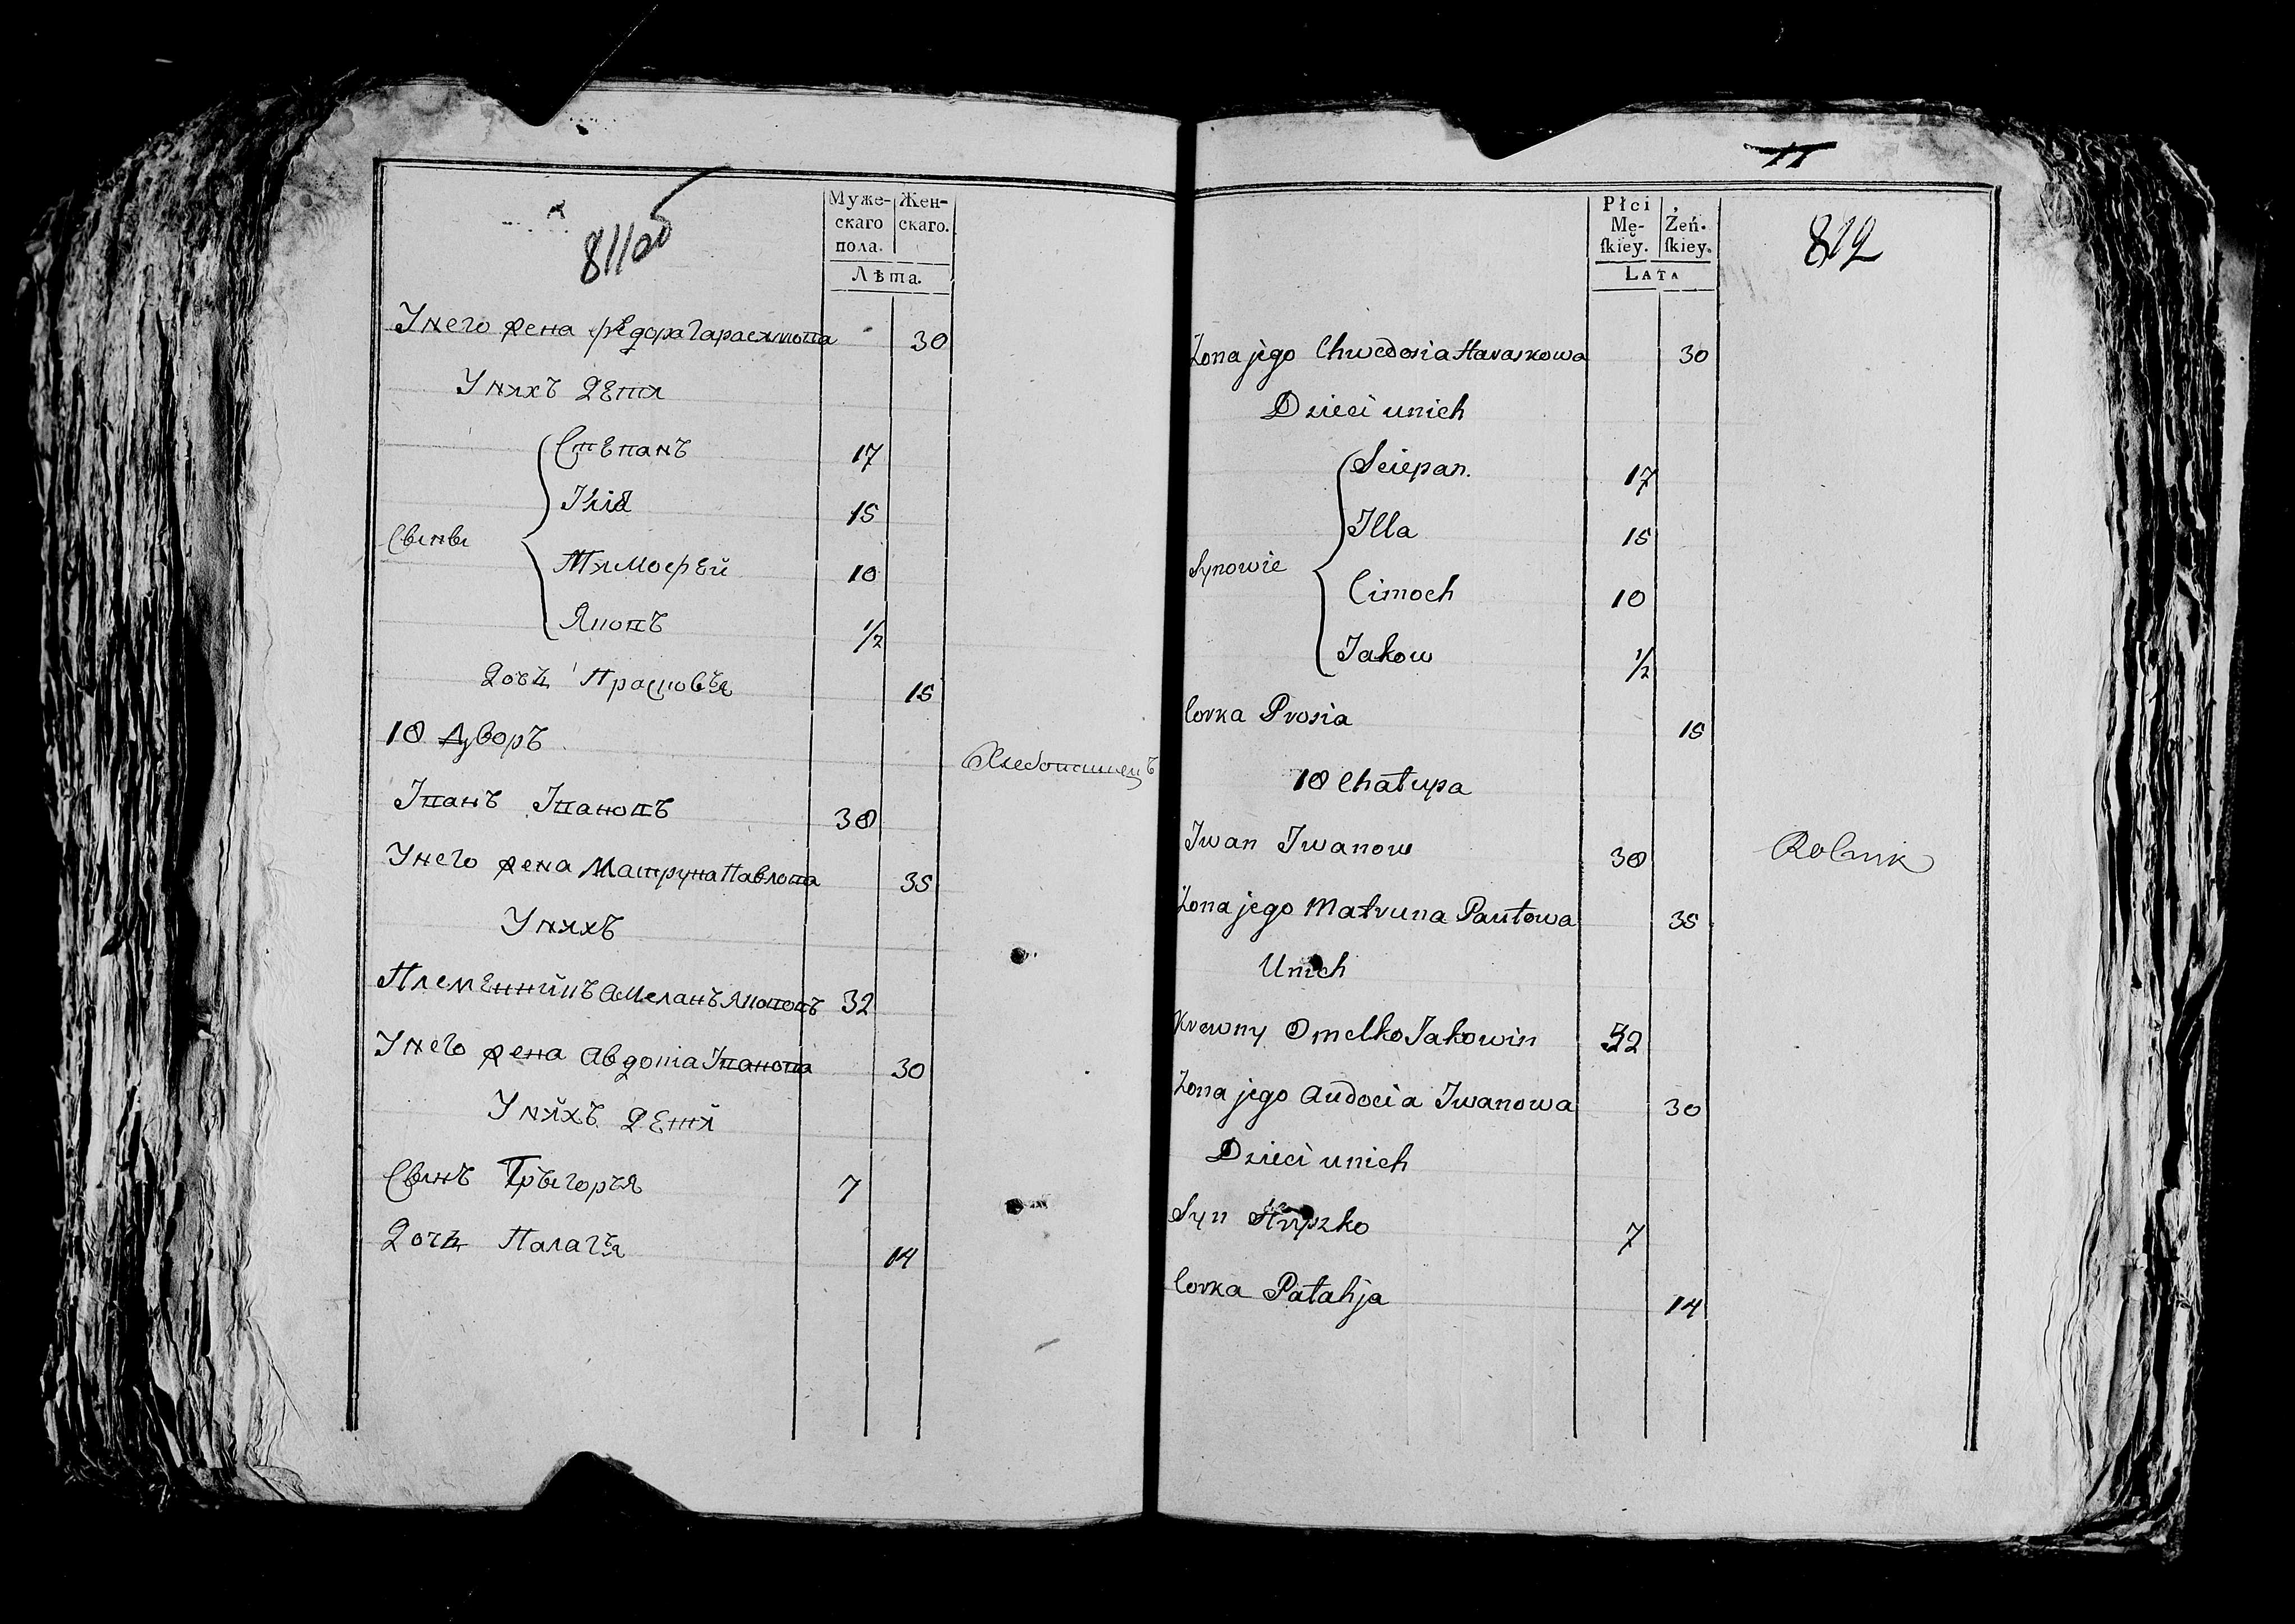 811об
Муже-
скаго
пола.
Жен-
скаго.
Лѣта.
У него жена Федора Гараскиова 30
У нихъ дети
Сынове
Степанъ 17
Илiя 15
Тимофей 10
Яковъ 1/2
Дочь Прасковья 15
10 дворъ
Хлебопашецъ
Иванъ Ивановъ 30
У него жена Матруна Павлова 35
У нихъ
Племенникъ Амеланъ Якововъ 32
У него жена Авдотia Иванова 30
У нихъ дети
Сынъ Грыгорья 7
Дочь Палагья 14
11
812
Płci
Mę-
ſkiey.
Żeń-
ſkiey.
LATA
Żona jego Chwedosia Haraskowa 30
Dzieci unich
Synowie
Sciepan. 17
Illa 15
Cimoch 10
Jakow 1/2
Corka Prosia 15
10 Chałupa
Iwan Iwanow 30
Rolnik
Żona jego Matruna Pawłowa 35
Unich
Krewny Omelko Jakowin 32
Żona jego Audocia Iwanowa 30
Dzieci unich
Syn Hryszko 7
Corka Pałahja 14